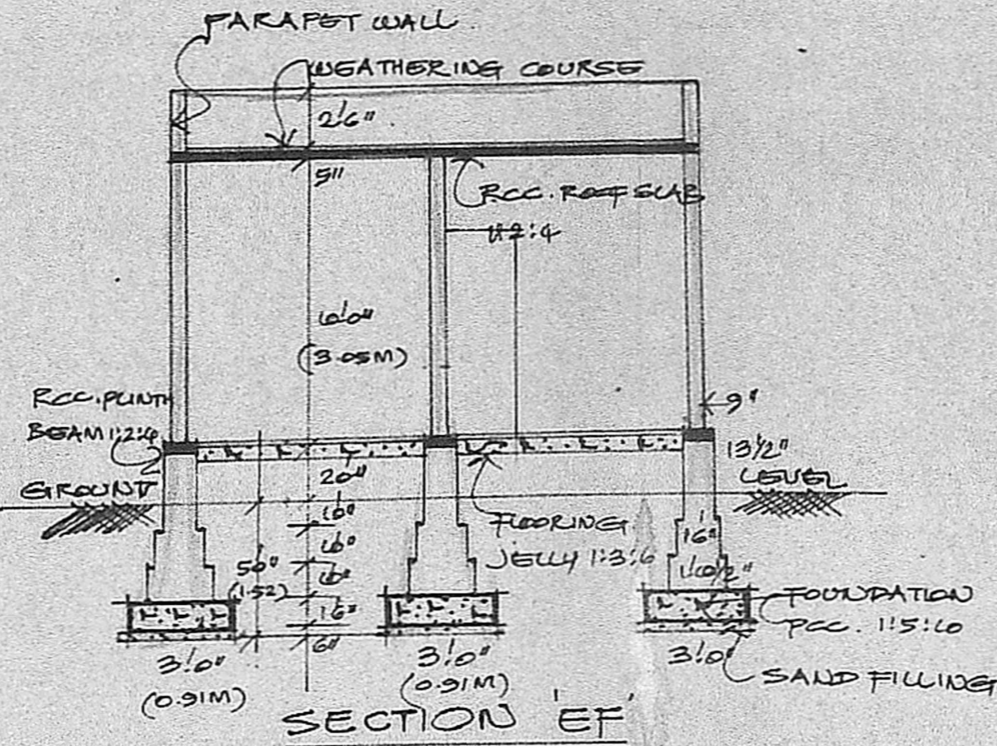 PARAPET WALL
WEATHERING COURSE
2'6"
5"
RCC. ROOF SLAB
1:2:4
10'0"
(3.05M)
RCC. PLINTH
BEAM 1:2:4
9"
13½"
20"
GROUND
LEVEL
FLOORING
JELLY 1:3:6
50"
(1.52)
16"
6"
FOUNDATION
PCC. 1:5:10
SAND FILLING
3'0"
(0.91M)
3'0"
(0.91M)
3'0"
SECTION 'EF'